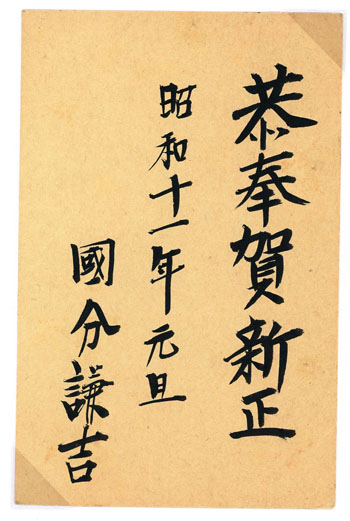 恭奉賀新正
昭和十一年元旦
國分謙吉